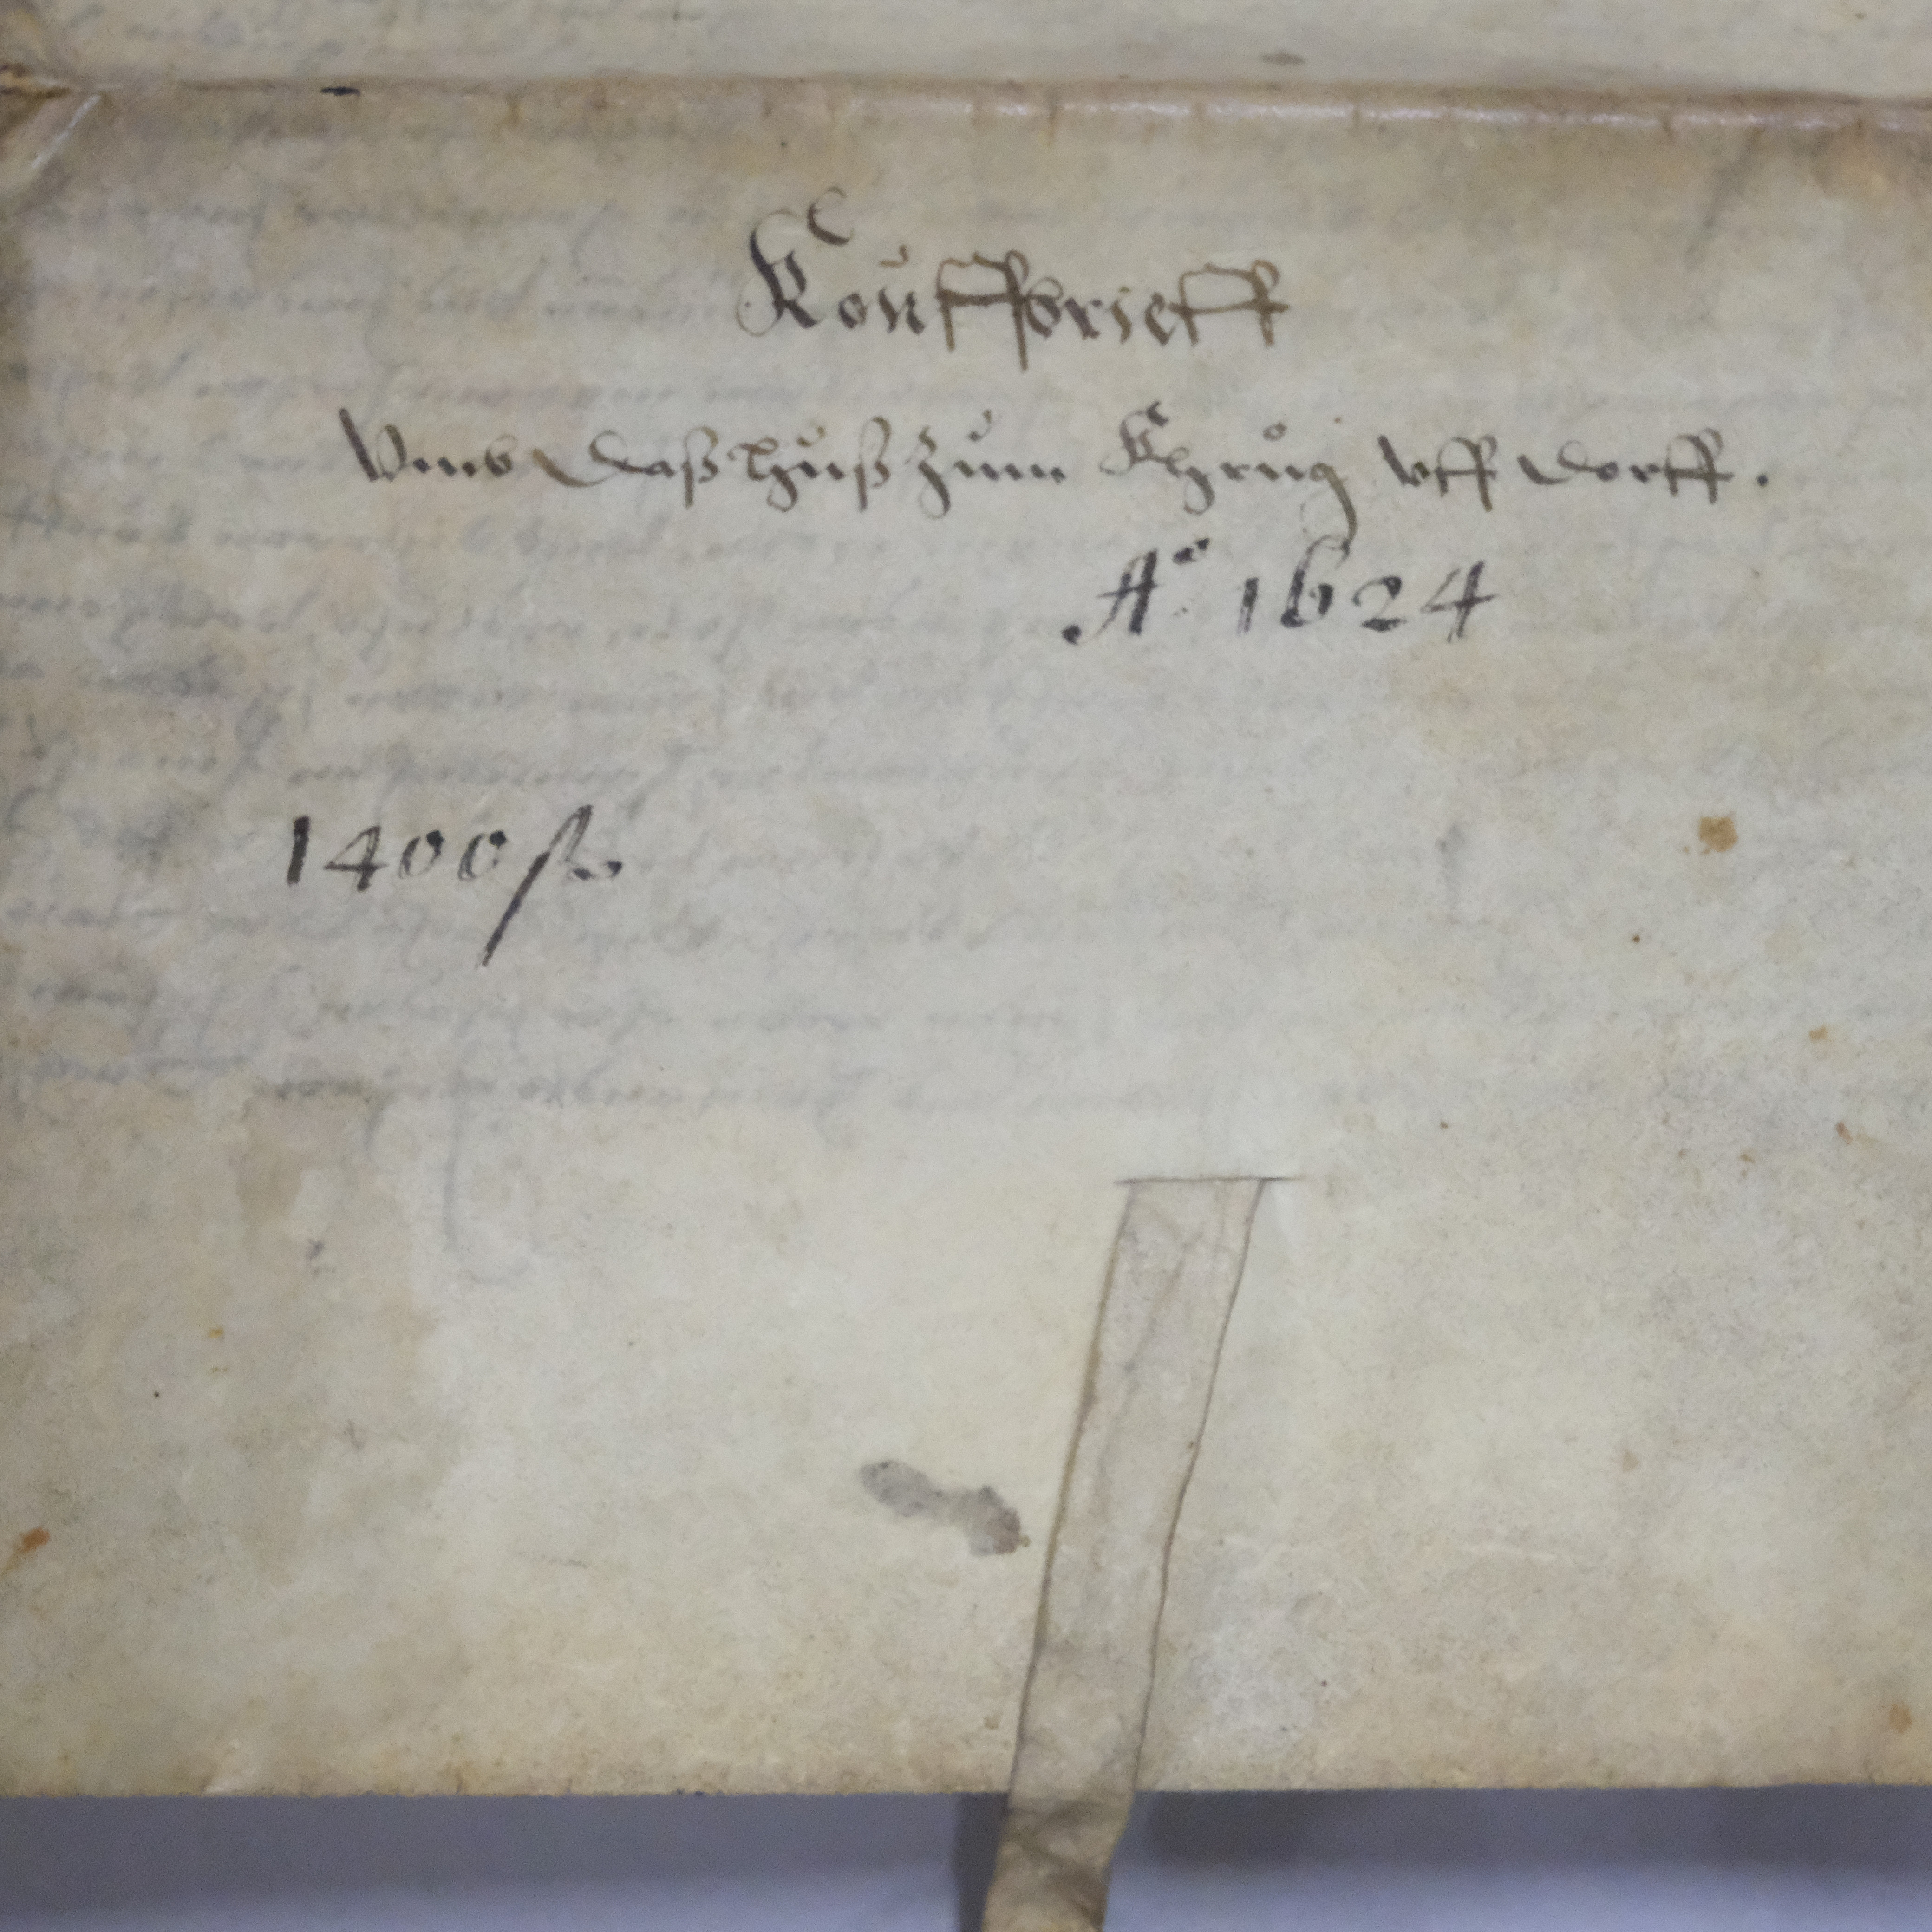 Kouffbrieff
Vmb daß huß zum Khruͦg vff dorff.
Aͦ 1624
1400 fl.